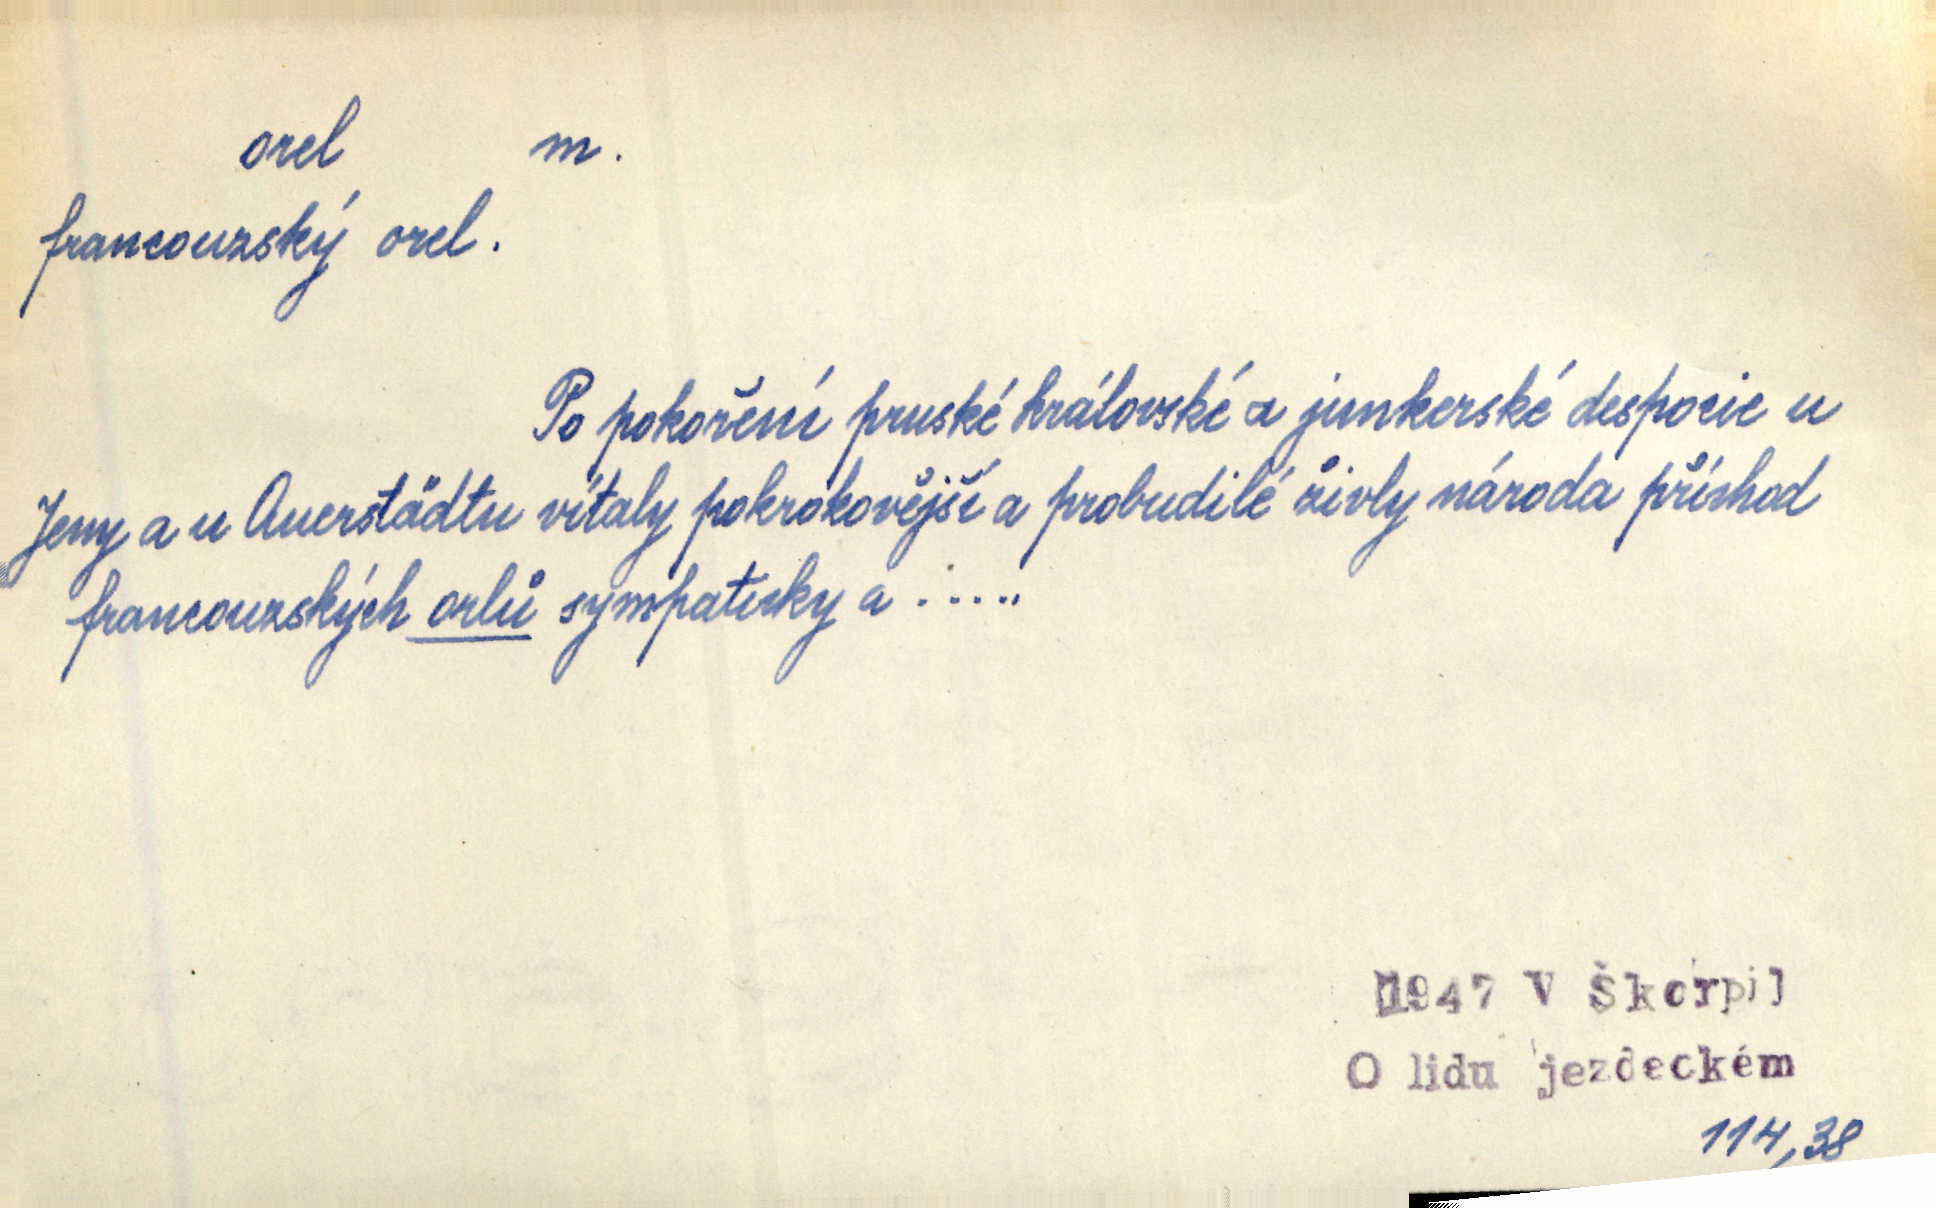 orel m.
francouzský orel.
Po pokoření pruské královské a junkerské despocie u
Jeny a u Auerstädtu vítaly pokrokovější a probudilé živly národa příchod
francouzských orlů sympaticky a .....
1947 V Škorpil
O lidu jezdeckém
114,38